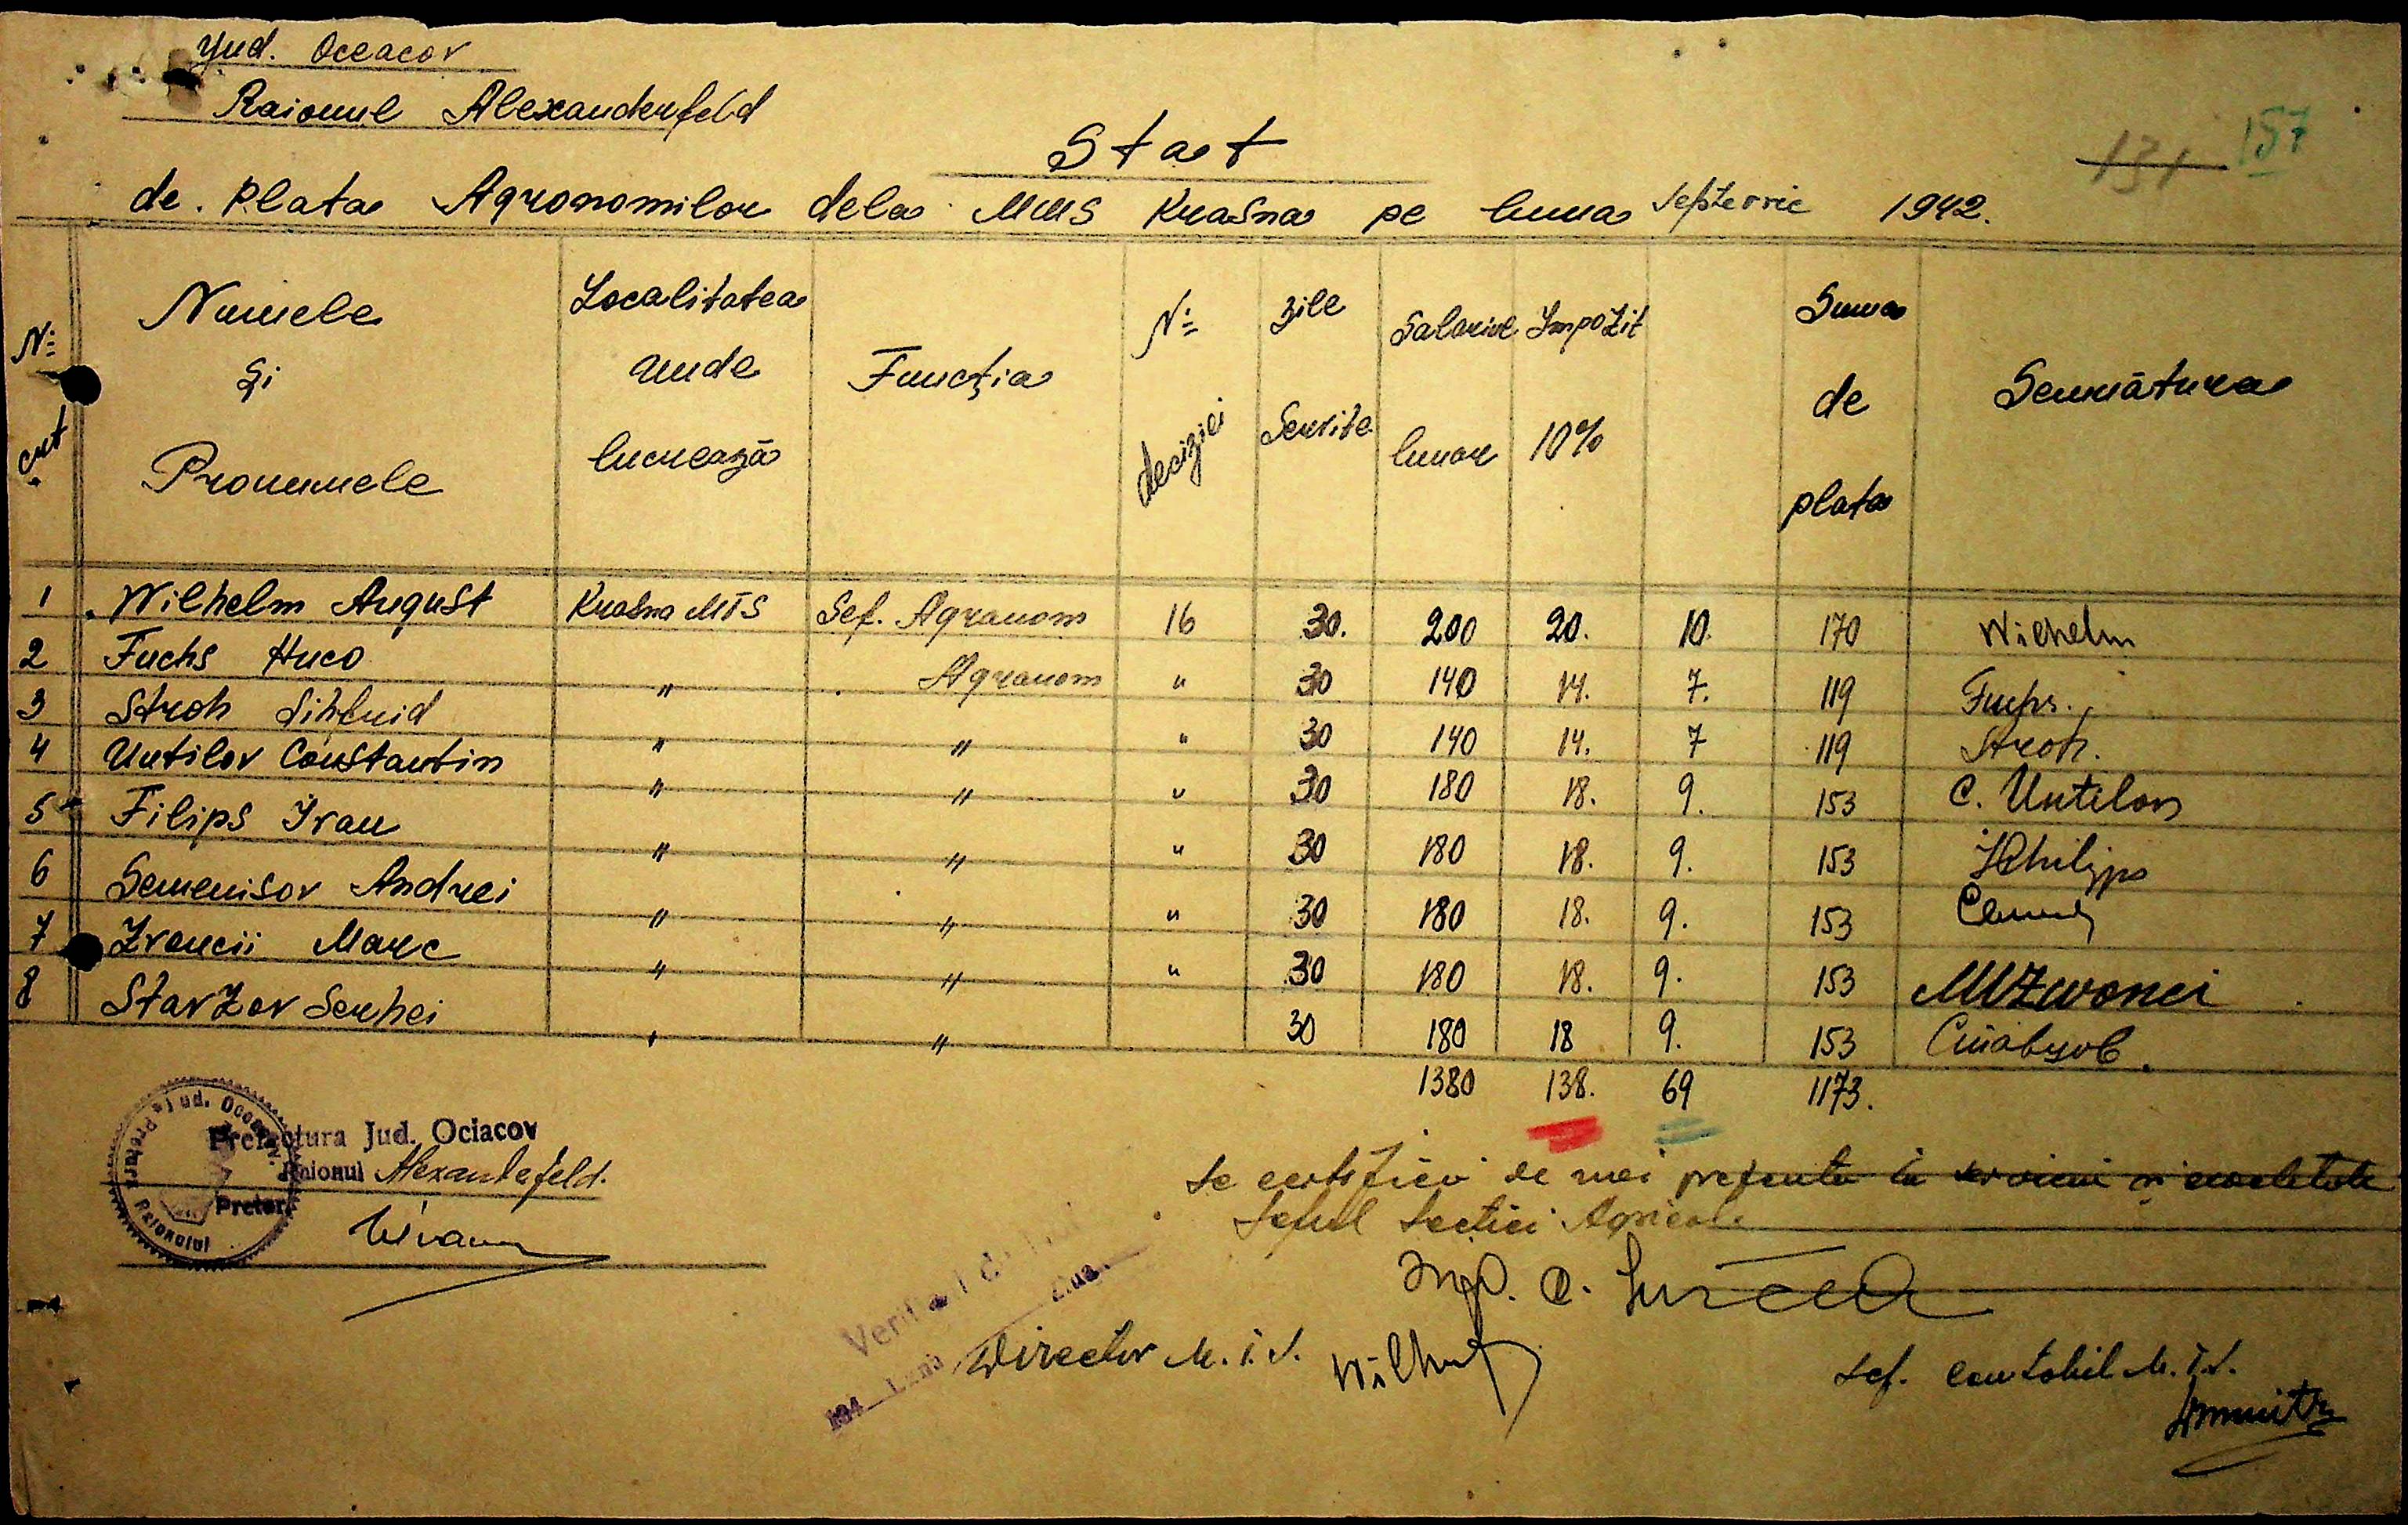 Jud. Oceacov
Raionul Alexanderfeld
131 157
Stat
de. Plata Agronomilor dela MMS Krasna pe luna Septemvrie 1942.
№ crt. Numele Și Pronumele Localitatea unde lucrează Funcția № deciziei zile Servite Salariul lunar Impozit 10% Suma de plata Semnătura
1 Wilhelm August Krasna MTS Sef. Agranom 16 30. 200 20. 10. 170 Wilhelm
2 Fuchs Huco " Agranom " 30 140 14. 7. 119 Fuchs.
3 Stroh Sihfrid " " " 30 140 14. 7 119 Stroh.
4 Untilov Constantin " " " 30 180 18. 9. 153 C. Untilov
5 Filips Ivan " " " 30 180 18. 9. 153 JPhilipps
6 Semenisov Andrei " " " 30 180 18. 9. 153
7 Zvoncii Marc " " " 30 180 18. 9. 153 MZwonci
8 Stavzov Serhei " " 30 180 18 9. 153 Ставцов
1380 138. 69 1173.
Pretura Raionului Jud. Oceacov
Prefectura Jud. Ociacov
Raionul Alexandefeld.
Pretor,
Se certifică de noi prezenta în serviciu și
Șeful Secției Agricole
Ing. C.
Verificat de
194 Luna Ziua
Director M.T.S. Wilhelm
Sef. Contabil M.T.S.